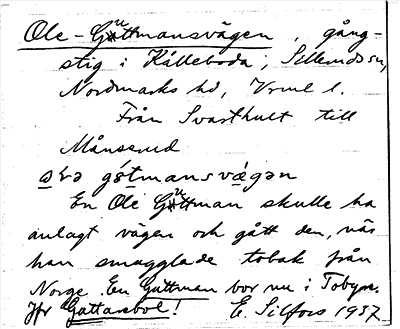 Ole-Guttmansvägen, gång-
stig i Kålleboda, Sillerudssn,
Nordmarks hd, Vrml l.
Från Svarthult till
Månserud
En Ole Guttman skulle ha
anlagt vägen och gått den, när
han smugglade tobak från
Norge. En Guttman bor nu i Tobyn.
Jfr Guttarebol! E. Silfors 1937